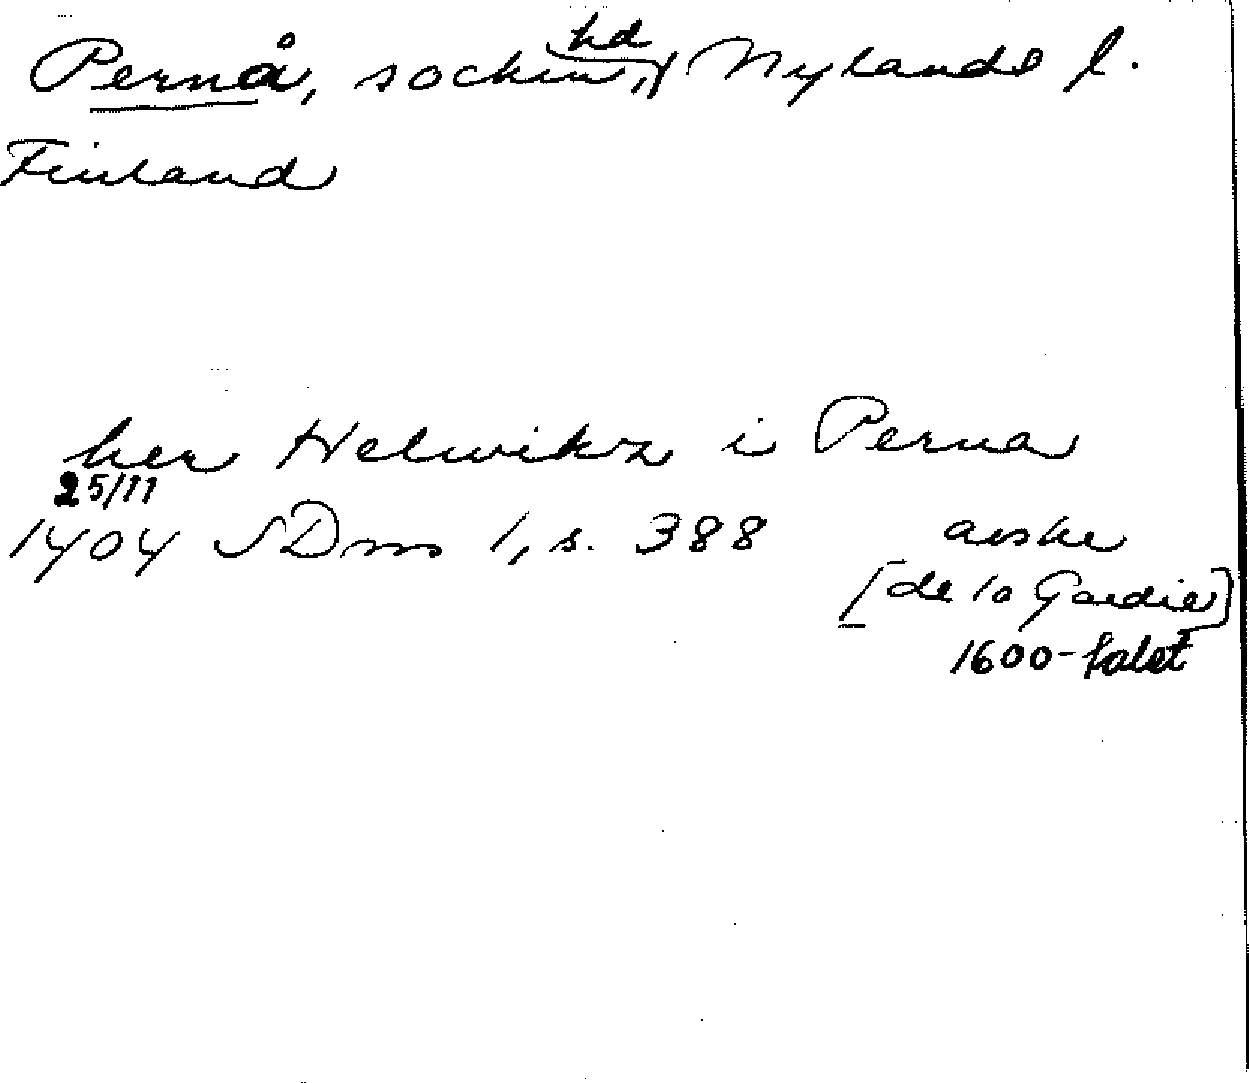 Pernå, socken, hd, Nylands l.
Finland
her Helwikz i Perna
25/11
1404 SDns 1, s. 388 avskr
[de la Gardie]
1600-talet